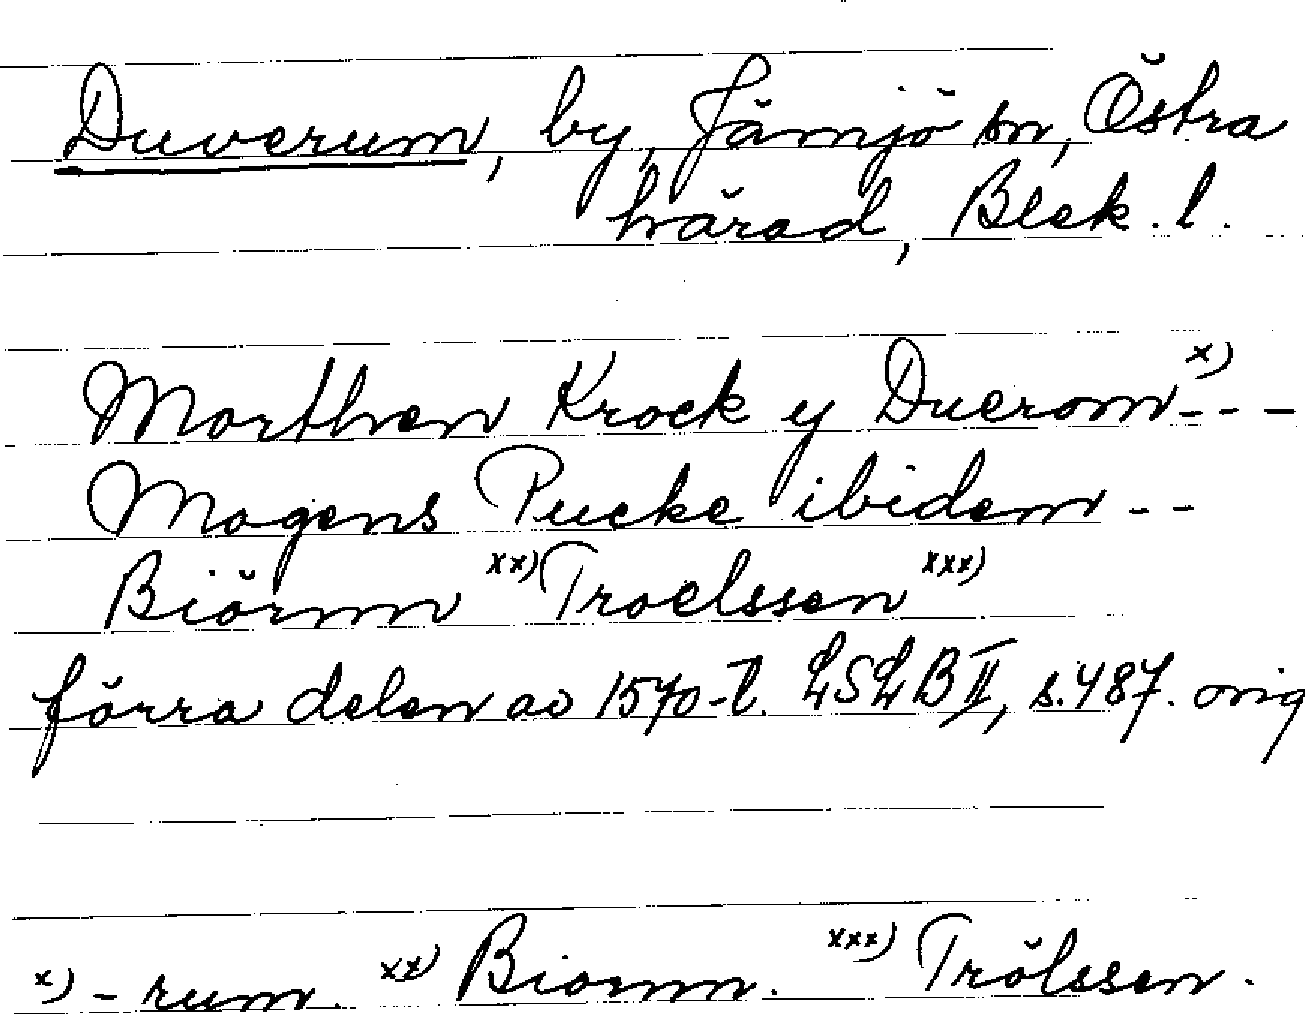 Duverum, by, Jämjö sn, Östra
härad, Blek. l.
Morthen Krock y Duerom x) ---
Mogens Pucke ibidem --
Biörnn xx) Troelssen xxx)
förra delen av 1570-t. LSLB II, s. 487. orig
x) - rum. xx) Biornn. xxx) Trölssen.